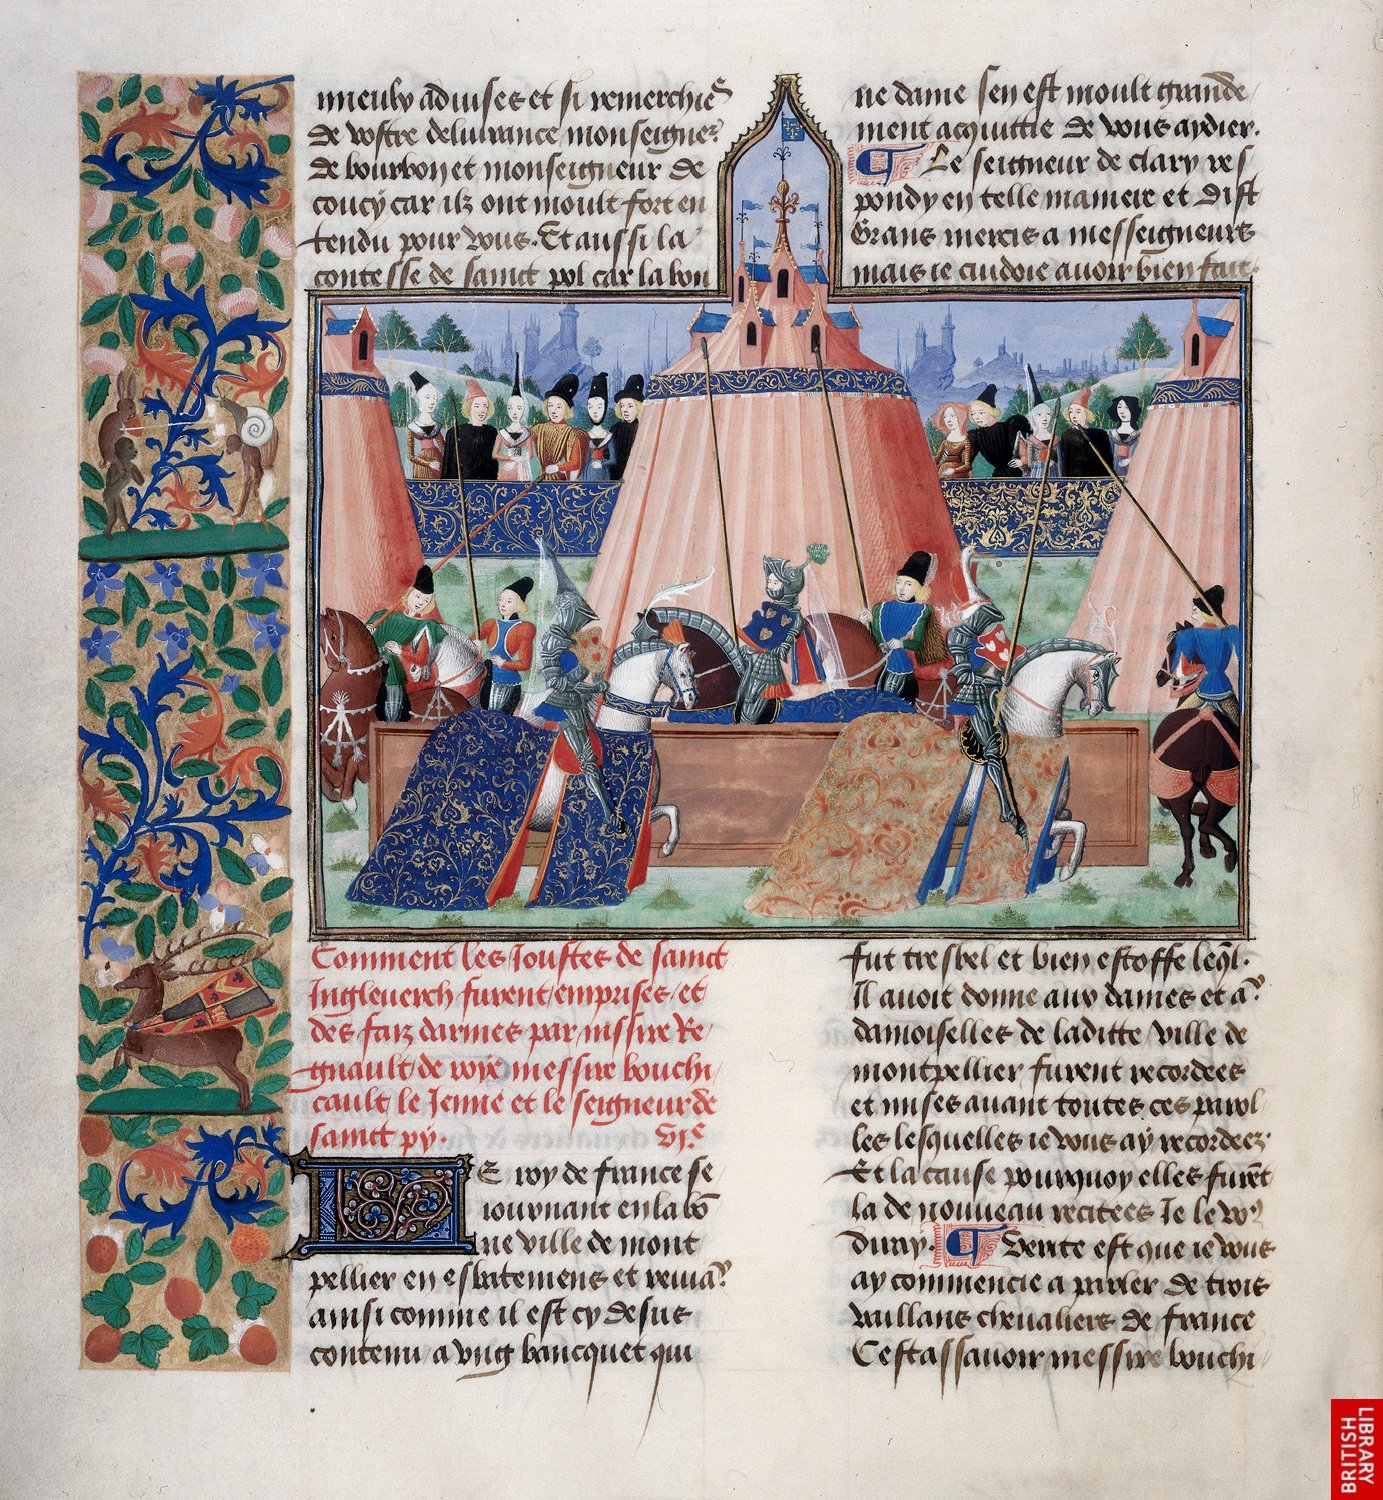 mieulx aduises et si remerchies
de vostre deliurance monseigneur
de bourbon et monseigneur de
coucy car ilz ont moult fort en
tendu pour vous. Et aussi la
contesse de sainct pol car la bon
ne dame sen est moult grande
ment acquittie de vous aydier.
Le seigneur de clary res
pondy en telle maniere et dist
Grans mercis a messeigneurs
mais ie cuidoie auoir bien fait.
Comment les Joustes de sainct
Jngleverch furent emprises et
des faiz darmes par missire Re
gnault de roye messire bouchi
cault le Jenne et le seigneur de
sainct py. vjͤ
LE roy de france se
iournant en la bō
ne ville de mont
pellier en esbatemens et reuiaˣ
ainsi comme il est cy desus
contenu a vng bancquet qui
fut tresbel et bien estoffe leq̄l
Il auoit donne aux dames et aˣ
damoiselles de laditte ville de
montpellier furent recordees
et mises auant toutes ces parol
les lesquelles ie vous ay recordez.
Et la cause pourquoy elles furēt
la de nouueau recitees Je le vo⁹
diray. Verite est que ie vous
ay commencie a parler de trois
vaillans cheualiers de france
Cest assauoir messire bouchi
BRITISH
LIBRARY